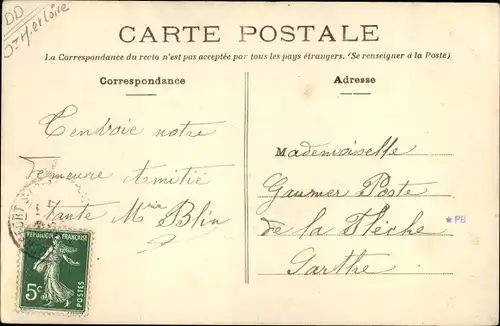 DD
CARTE POSTALE
La Correspondance du recto n'est pas acceptée par tous les pays étrangers. (Se renseigner à la Poste)
Correspondance
Adresse
notre
demeure Amitié
Tante Mria Blin
Mademoiselle
Gaumer Poste
de la Flèche
Sarthe
* PB
REPUBLIQUE FRANÇAISE
5c
POSTES